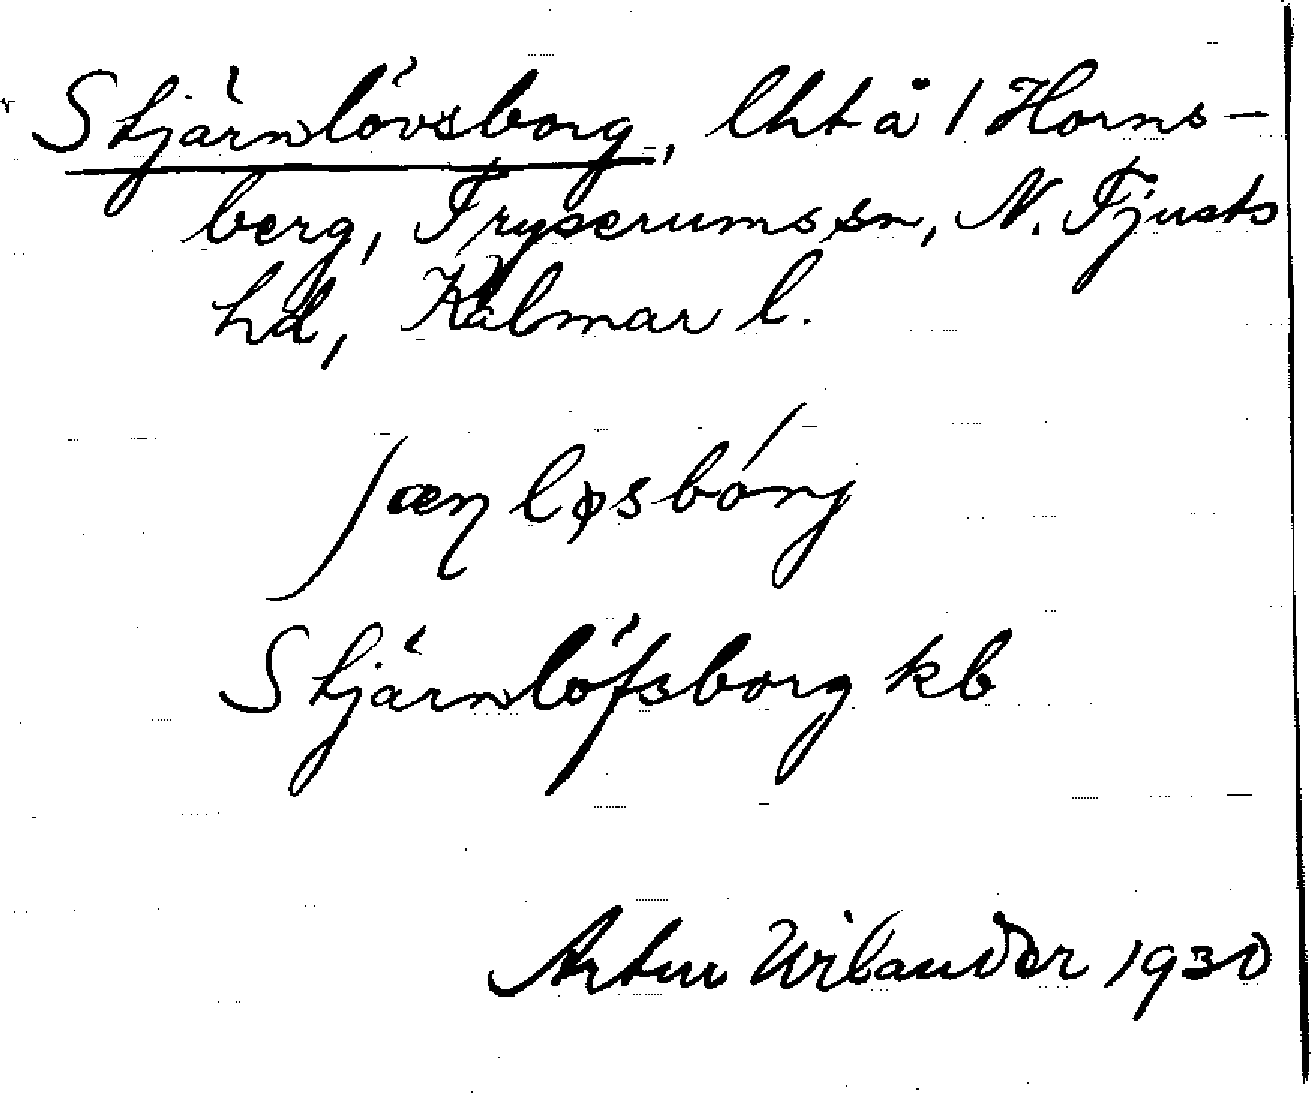 Stjärnlövsborg, lht å 1 Horns-
berg, Tryserums sn, N. Tjusts
hd, Kalmar l.
ʃæɳløsbórj
Stjärnlöfsborg kb
Artur Wilander 1930